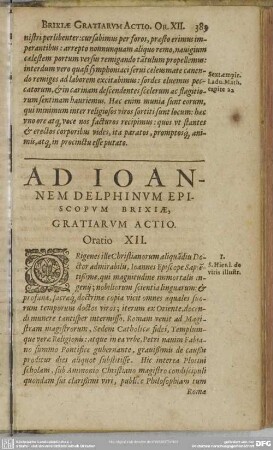 BRIXIÆ GRATIARVM ACTIO. OR. XII. 389
nistri perlibenter: cursabimus per foros, præsto erimus im-
perantibus: arrepto nonnunquam aliquo remo, nauigium
cælestem portum versus remigando tãtulum propellimus:
interdum vero quasi symphoniaci serui celeumate canen-
do remiges ad laborem excitabimus: sordes eluemus pec-
catorum, & in carinam descendentes scelerum ac flagitio-
rum sentinam hauriemus. Hæc enim munia sunt eorum,
qui minimum inter religiosos viros sortiti sunt locum: hæc
vno ore atq, voce nos facturos recipimus: quos vt stantes
& erectos corporibus vides, ita paratos, promptosq, ani-
mis, atq, in procinctu esse putato.
AD IOAN-
NEM DELPHINVM EPI-
SCOPVM BRIXIÆ,
GRATIARVM ACTIO.
Oratio XII.
ORigenes ille Christianorum aliquãdiu Do-
ctor admirabilis, Ioannes Episcope
ingenij; nobiliorum scientia linguarum &
profana, sacraq, doctrina copia vicit omnes æquales suo-
rum temporum doctos viros; iterum ex Oriente, docen-
di munere tantisper intermisso, Romam venit ad Magi-
stram magistrorum, Sedem Catholicæ fidei, Templum-
que veræ Religionis: atque in ea vrbe, Petri nauim Fabia-
no summo Pontifice gubernante, grauissimis de causis
proditur dies aliquot substitisse. Hic interea Plotini
scholam, sub Ammonio Christiano magistro condiscipuli
quondam sui clarissimi viri, publice Philosophiam tum
Romæ
1.